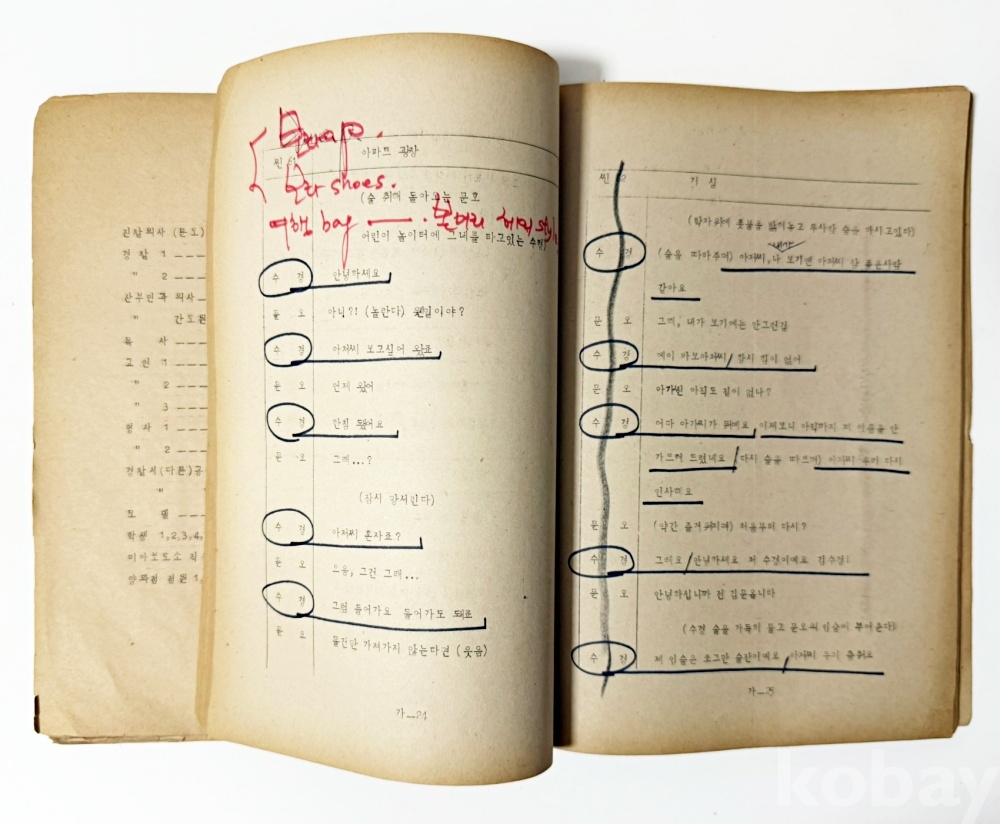 경찰 1 ---
" 2 ---
" 간도원
목 사 ---
교인 1 ---
" 2 ---
" 3 ---
형사 1 ---
" 2 ---
경찰서 (다른)
"
모델 ---
학생 1,2,3,4,
shoes.
여행 bag
씬
아파트 광장
(술 취해 돌아오는 문호
어린이 놀이터에 그네를 타고있는 수경)
수 경 안녕하세요
문 오 아니?! (놀란다) 웬일이야?
수 경 아저씨 보고싶어 왔죠
문 오 언제 왔어
수 경 한참 됐어요
문 오 그래...?
(잠시 망서린다)
수 경 아저씨 혼자죠?
문 오 으응, 그건 그래...
수 경 그럼 들어가요 들어가도 돼죠
문 오 물건만 가져가지 않는다면 (웃음)
가-24
씬
거 실
(탁자위에 촛불을 밝혀놓고 두사람 술을 마시고있다)
수 경 (술을 따라주며) 아저씨, 나 보기엔 아저씨 참 좋은사람
내가
같아요
문 오 그래, 내가 보기에는 안그런걸
수 경 에이 바보아저씨/ 잠시 말이 없어
문 오 아가씬 아직도 집이 없나?
수 경 어마 아가씨가 뭐예요 이제보니 아직까지 제 이름을 안
가르켜 드렸네요/ (다시 술을 따르며) 아저씨 우리 다시
인사해요
문 오 (약간 즐거워지며) 처음부터 다시?
수 경 그래요/ 안녕하세요 저 수경이예요 김수경!
문 오 안녕하십니까 전 김문옵니다
(수경 술을 가득히 들고 문오씨 입술에 부어준다)
수 경 제 입술은 조그만 술잔이예요/ 아저씨 우리 춤춰요
가-25
kobay